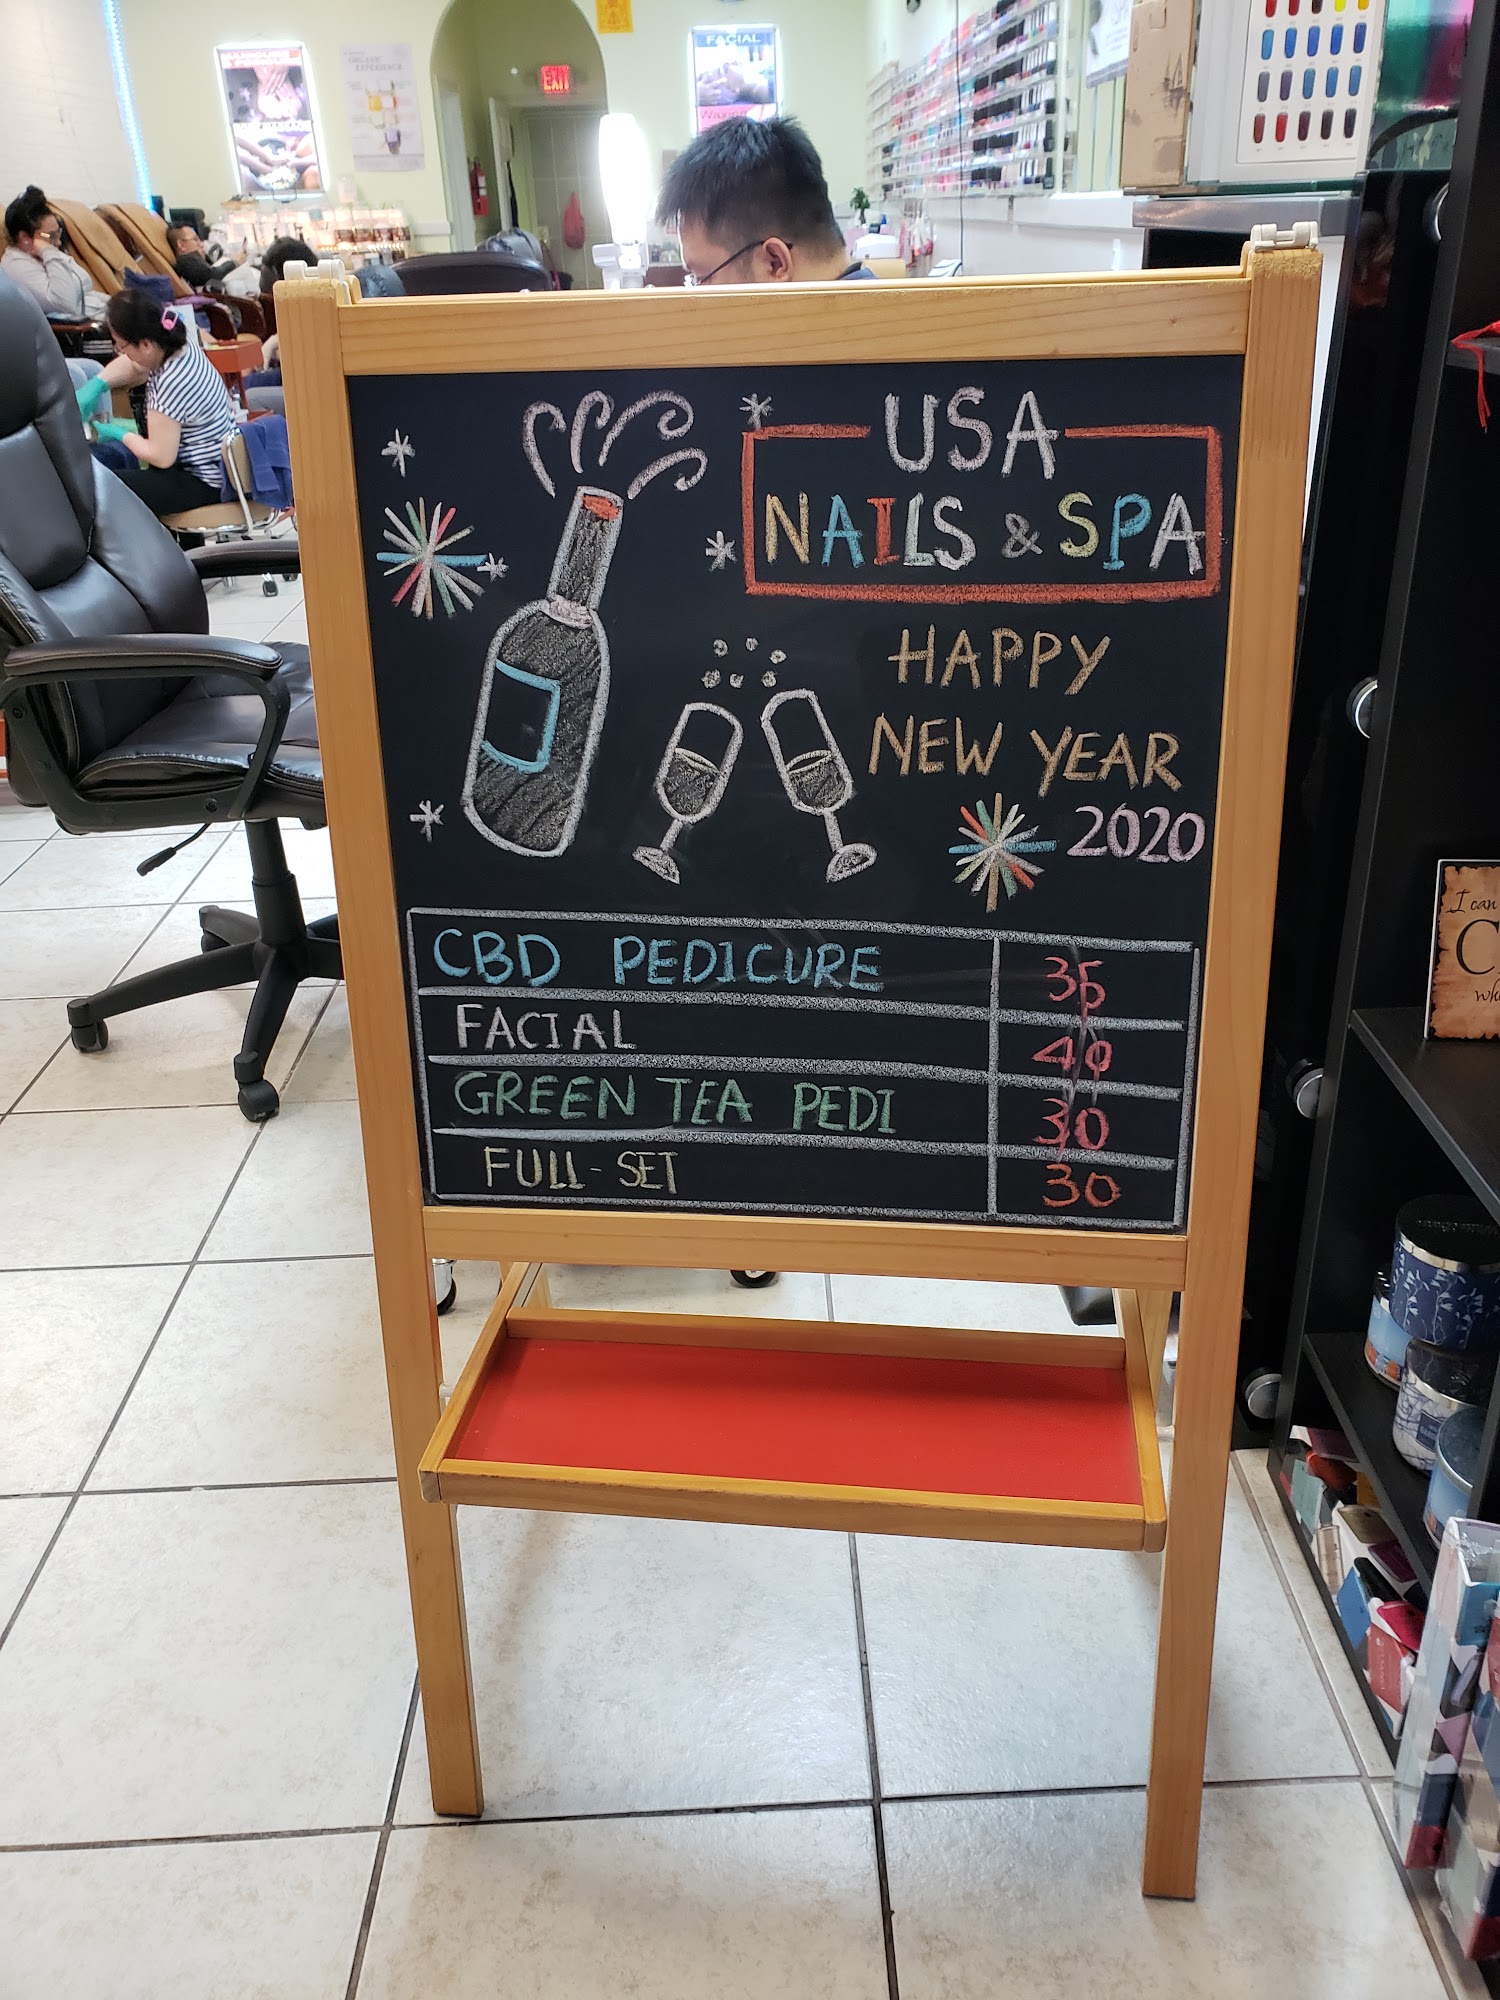 FACIAL
EXIT
USA
NAILS & SPA
HAPPY
NEW YEAR
2020
CBD PEDICURE 35
FACIAL 40
GREEN TEA PEDI 30
FULL-SET 30
I can